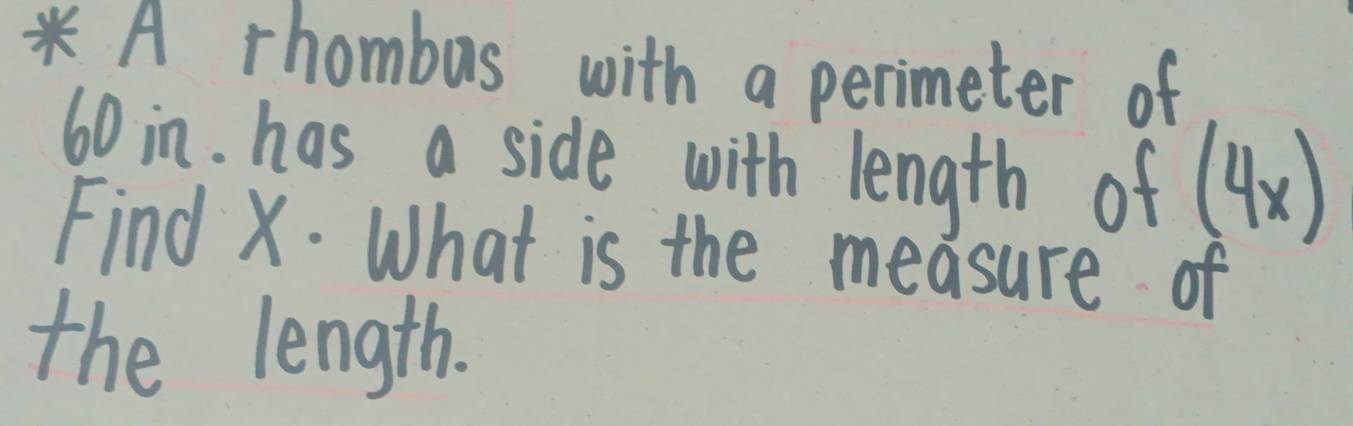 * A rhombus with a perimeter of
60 in. has a side with length of (4x)
Find X. What is the measure of
the length.